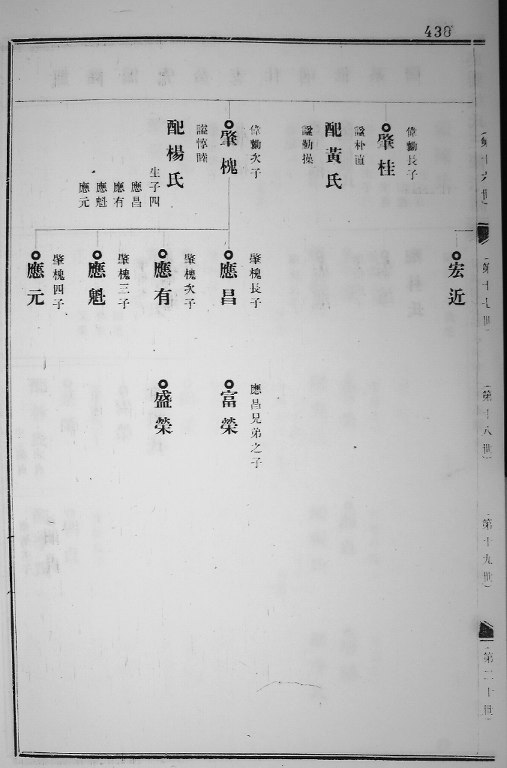 430
(第十六世)
(第十七世)
(第十八世)
(第十九世)
(第二十世)
肇桂
偉勳長子
諡朴直
配黃氏
諡勤操
肇槐
偉勳次子
諡惇睦
配楊氏
生子四
應昌
應有
應魁
應元
宏近
應昌
肇槐長子
應有
肇槐次子
應魁
肇槐三子
應元
肇槐四子
富榮
應昌兄弟之子
盛榮